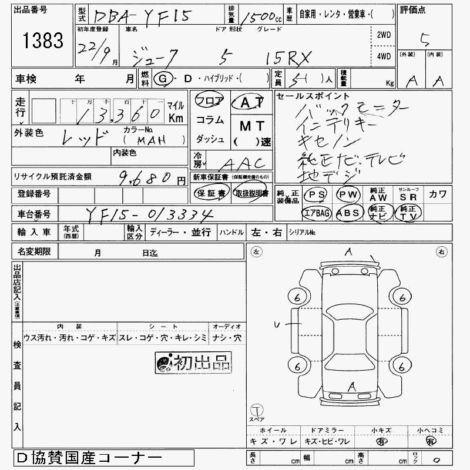 出品番号 1383
型式 DBA-YF15 排気量 1500cc 車歴 自家用・レンタ・営業車・( ) 評価点 5
初年度登録 22/9月 車名 ジューク ドア 形状 5 グレード 15RX 2WD 4WD (外装) A (内装) A
車検 年 月 燃料 G・D・ハイブリッド・( ) 定員 5-( )人 積載量 Kg
走行 13,360 マイル Km フロア コラム ダッシュ AT MT ( )速 セールスポイント
バックモニター
インテリキー
キセノン
純正ナビ・テレビ
地デジ
外装色 レッド カラーNo. (NAH) 内装色 冷房 AAC
リサイクル預託済金額 9,680円 新車保証書(保証継承可能なもの) 保証書 取扱説明書
登録番号 純正装備品 PS PW 純正AW サンルーフSR カワ
車台番号 YF15-013334 エアBAG ABS 純正ナビ 純正TV
輸入車 年式(西暦) 輸入区分 ディーラー・並行 ハンドル 左・右 シリアルNo.
名変期限 月 日迄
出品店記入(注意事項)
左 右
A
6 6
U
6 6
A
スペア
検査員記入
内装 シート オーディオ
ウス汚れ・汚れ・コゲ・キズ スレ・コゲ・穴・キレ・シミ ナシ・穴
初出品
ホイール ドアミラー 小キズ 小ヘコミ
キズ・ワレ キズ・ヒビ・ワレ 有 有
D協賛国産コーナー
長さ cm 幅 cm 高さ cm ロック 0